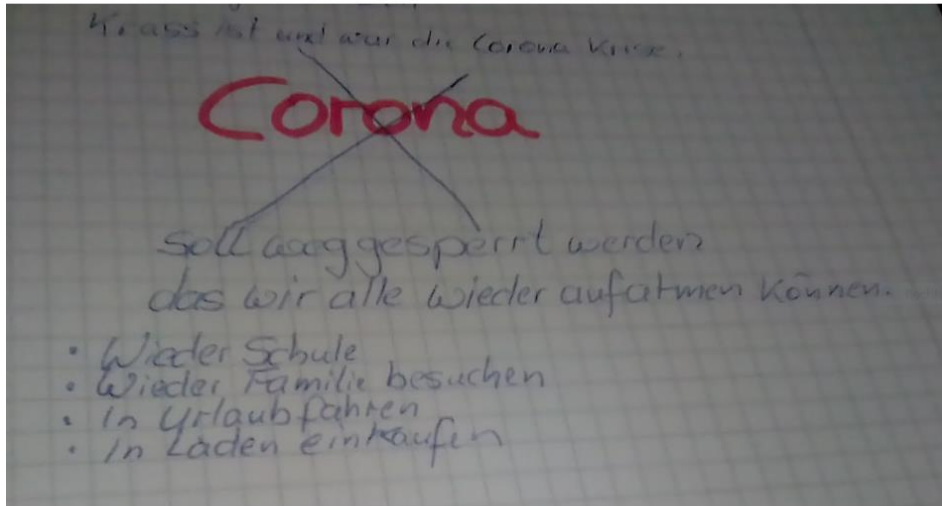 Krass ist und war die Corona Krise.
Corona
soll weggesperrt werden
das wir alle wieder aufatmen können.
• Wieder Schule
• Wieder Familie besuchen
• In Urlaub fahren
• In Läden einkaufen